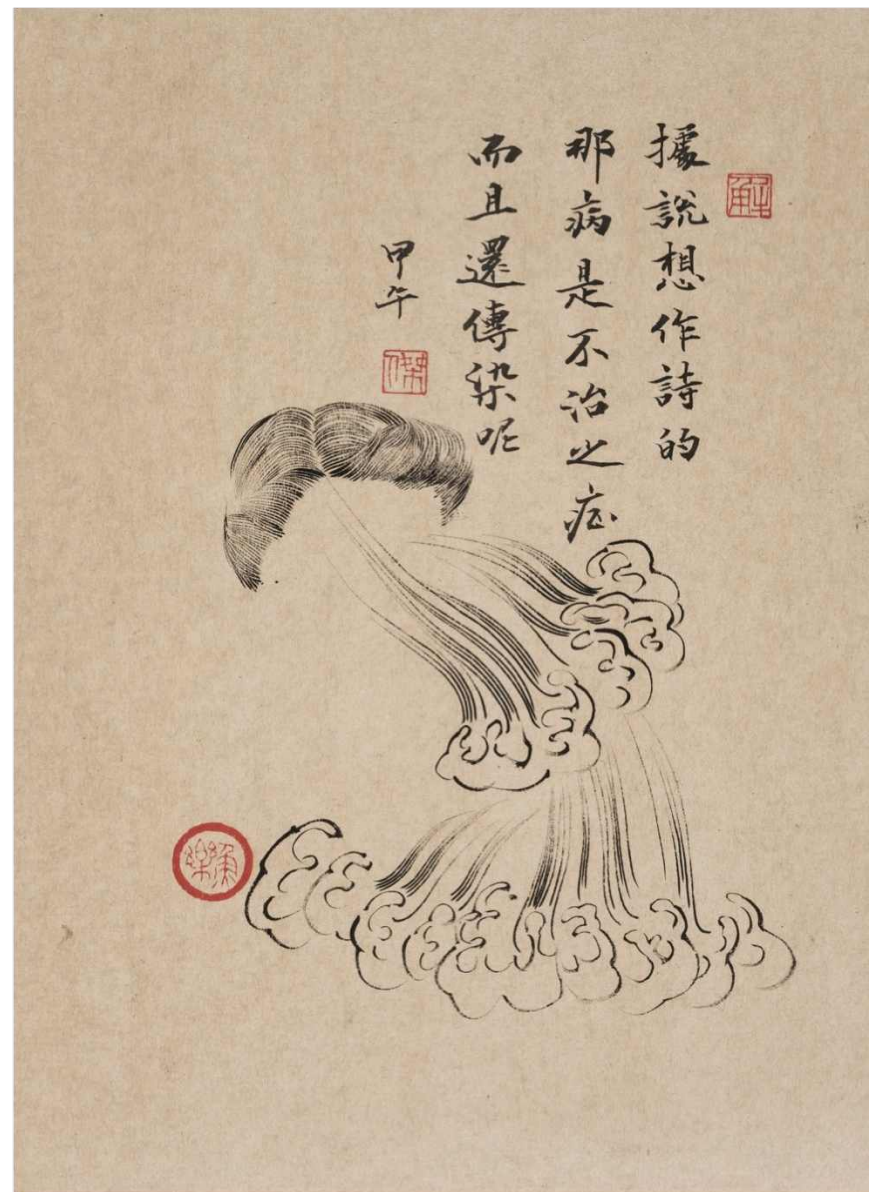 據說想作詩的
那病是不治之症
而且還傳染呢
甲午